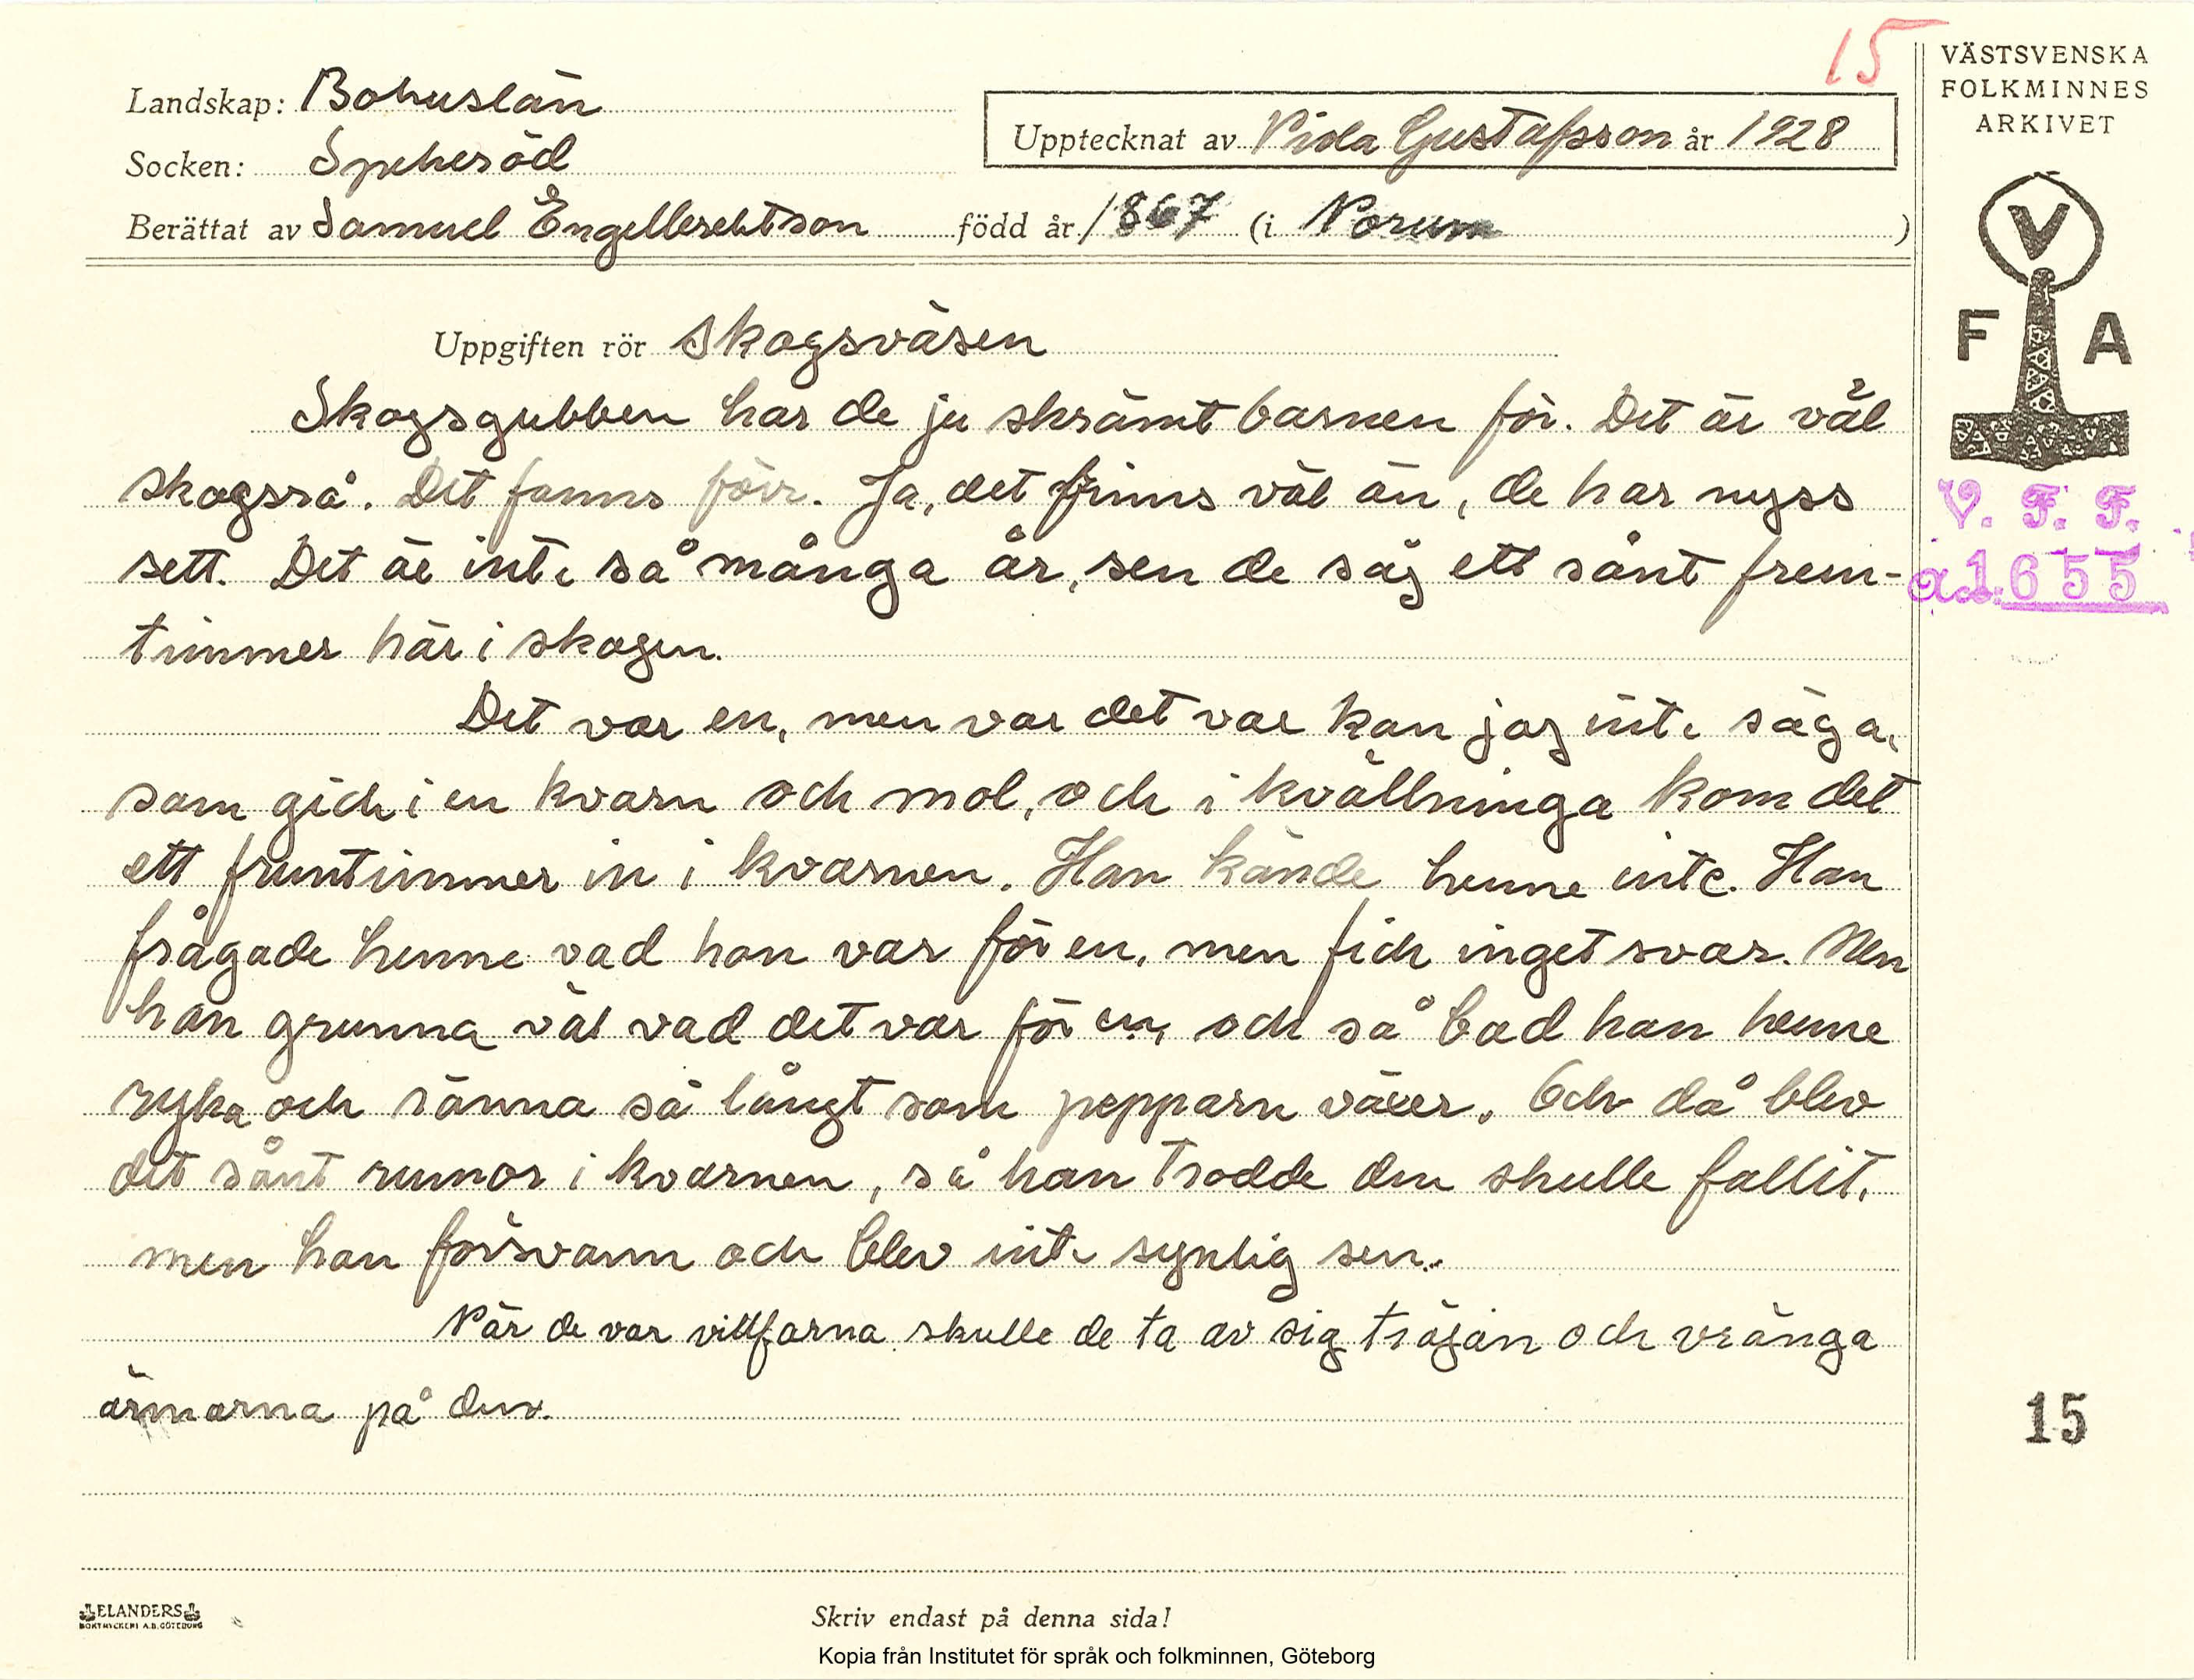 15
VÄSTSVENSKA
FOLKMINNES
ARKIVET
Landskap: Bohuslän
Upptecknat av Vida Gustafsson år 1928
Socken: Spekeröd
Berättat av Samuel Engelbrektson född år 1867 (i Norum)
V
F A
Uppgiften rör Skogsväsen
Skogsgubben har de ju skrämt barnen för. Det är väl
skogsrå. Det fanns förr. Ja, det finns väl än, de har nyss
sett. Det är inte så många år, sen de såg ett sånt frun-
timmer här i skogen.
V. F. F.
a1:655
Det var en, men var det var kan jag inte säga,
som gick i en kvarn och mol, och i kvällninga kom det
ett fruntimmer in i kvarnen. Han kände henne inte. Han
frågade henne vad hon var för en, men fick inget svar. Men
han grunna väl vad det var för en, och så bad han henne
ryka och ränna så långt som pepparn växer. Och då blev
det sånt rumor i kvarnen, så han trodde den skulle fallit,
men hon försvann och blev inte synlig sen.
När de var villfarna skulle de ta av sig tröjan och vränga
ärmarna på den.
15
ELANDERS
BOKTRYCKERI A.B. GÖTEBORG
Skriv endast på denna sida!
Kopia från Institutet för språk och folkminnen, Göteborg